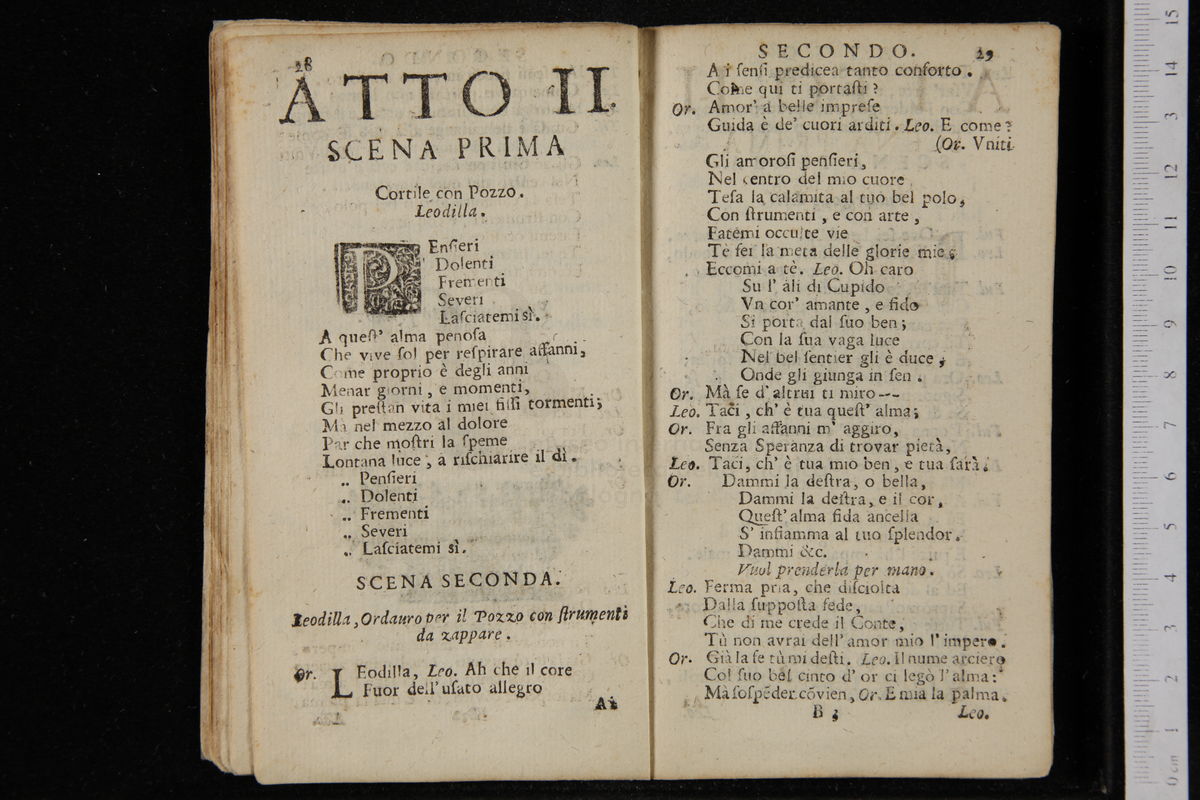 28
ATTO II.
SCENA PRIMA
Cortile con Pozzo.
Leodilla.
PEnſieri
Dolenti
Frementi
Severi
Laſciatemi sì.
A queſt' alma penoſa
Che vive ſol per reſpirare affanni,
Come proprio è degli anni
Menar giorni, e momenti,
Gli preſtan vita i miei fiſſi tormenti;
Mà nel mezzo al dolore
Par che moſtri la ſpeme
Lontana luce, a riſchiarire il dì.
„ Penſieri
„ Dolenti
„ Frementi
„ Severi
„ Laſciatemi sì.
SCENA SECONDA.
Leodilla, Ordauro per il Pozzo con ſtrumenti
da zappare.
Or. LEodilla, Leo. Ah che il core
Fuor dell' uſato allegro
Ai
SECONDO. 29
A i ſenſi predicea tanto conforto.
Come qui ti portaſti?
Or. Amor' a belle impreſe
Guida è de' cuori arditi. Leo. E come?
(Or. Vniti
Gli amoroſi penſieri,
Nel centro del mio cuore
Teſa la calamita al tuo bel polo,
Con ſtrumenti, e con arte,
Fatemi occulte vie
Tè fei la meta delle glorie mie;
Eccomi a tè. Leo. Oh caro
Su l' ali di Cupido
Vn cor' amante, e fido
Si porta dal ſuo ben;
Con la ſua vaga luce
Nel bel ſentier gli è duce;
Onde gli giunga in ſen.
Or. Mà ſe d' altrui ti miro--
Leo. Taci, ch' è tua queſt' alma;
Or. Fra gli affanni m' aggiro,
Senza Speranza di trovar pietà,
Leo. Taci, ch' è tua mio ben, e tua ſarà.
Or. Dammi la deſtra, o bella,
Dammi la deſtra, e il cor,
Queſt' alma fida ancella
S' infiamma al tuo ſplendor.
Dammi &c.
Vuol prenderla per mano.
Leo. Ferma pria, che diſciolta
Dalla ſuppoſta fede,
Che di me crede il Conte,
Tù non avrai dell' amor mio l' impero.
Or. Già la fe tù mi deſti. Leo. Il nume arciero
Col ſuo bel cinto d' or ci legò l' alma:
Mà ſoſpẽder cõvien, Or. E mia la palma.
B 3 Leo.